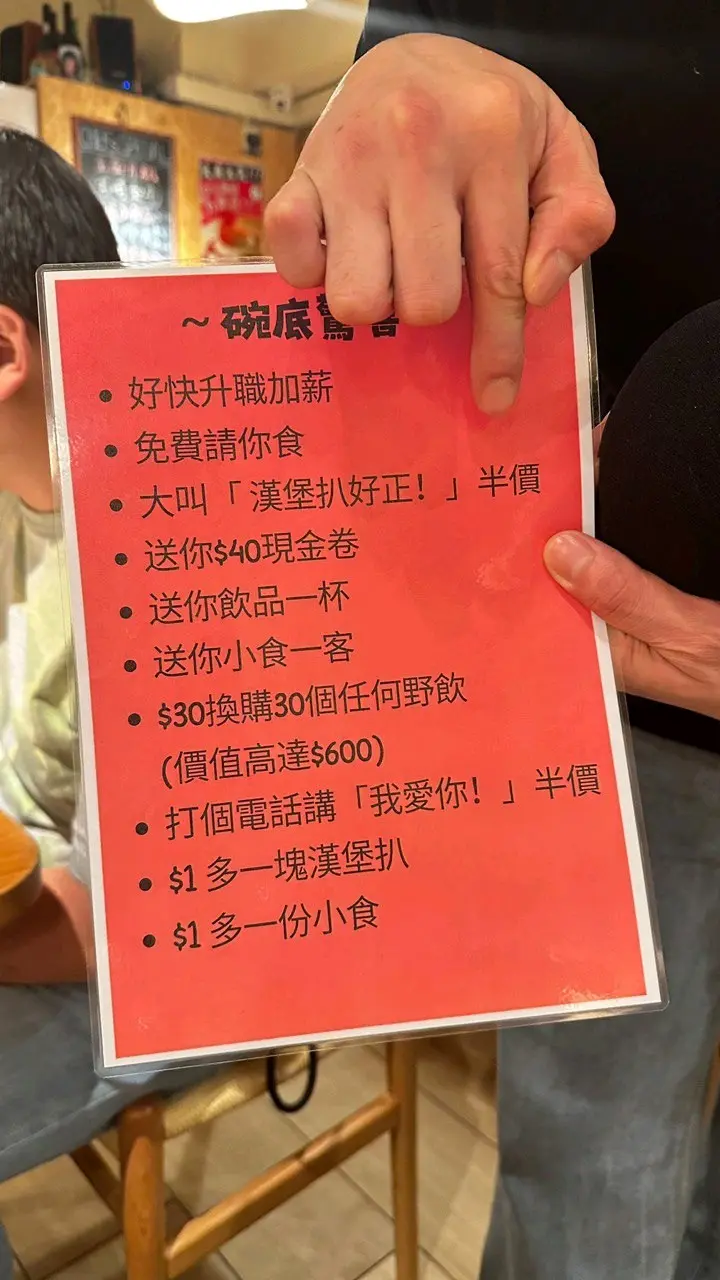 ~ 碗底驚
• 好快升職加薪
• 免費請你食
• 大叫「漢堡扒好正！」半價
• 送你$40現金卷
• 送你飲品一杯
• 送你小食一客
• $30換購30個任何野飲
(價值高達$600)
• 打個電話講「我愛你！」半價
• $1 多一塊漢堡扒
• $1 多一份小食